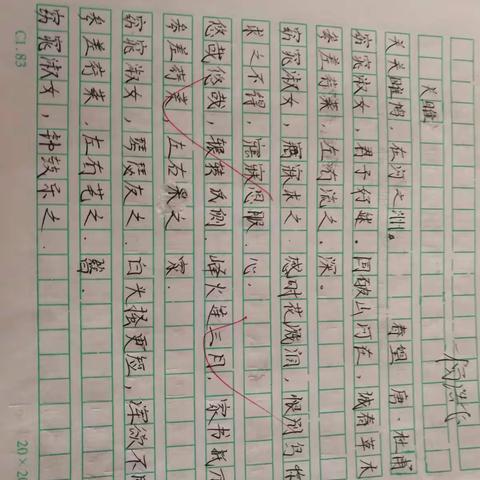 关雎
关关雎鸠,在河之洲。 春望 唐·杜甫
窈窕淑女,君子好逑。国破山河在,城春草木
参差荇菜,左右流之。深。
窈窕淑女,寤寐求之 感时花溅泪,恨别鸟惊
求之不得,寤寐思服.心.
悠哉悠哉,辗转反侧.烽火连三月,家书抵万
参差荇菜 左右采之
窈窕淑女,琴瑟友之 白头搔更短,浑欲不胜
参差荇菜.左右芼之. 簪.
窈窕淑女,钟鼓乐之.
CL.83 20×20